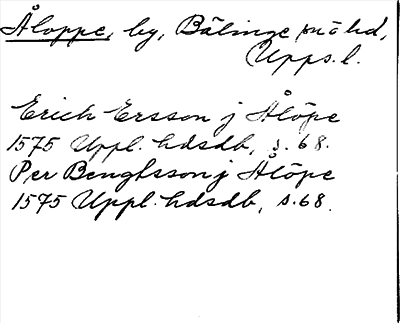 Åloppe, by, Bälinge sn o hd,
Upps. l.
Erich Ersson j Ålöpe
1575 Uppl. hdsdb, s. 68.
Per Bengtsson j Ålöpe
1575 Uppl. hdsdb, s. 68.